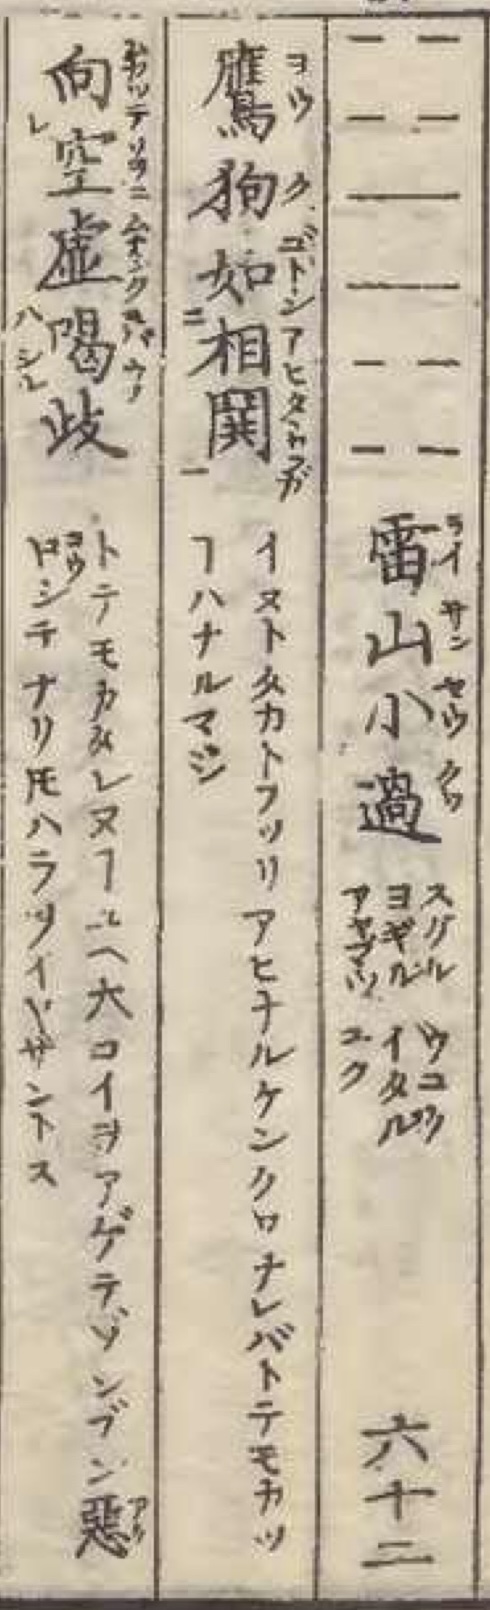 雷山小過 六十二
ライ サン セウ クワ
スグル ウコク
ヨギル イタル
アヤマツ ユク
鷹狗如相闘
ヨウ ク ゴトシ アヒタヽカフガ
二 一
イヌトタカトフツリアヒナルケンクワナレバトテモカツ
ヿハナルマジ
向空虚喝歧
ムカツテソラニ
レ
ハシル
トテモカタレヌヿユヘ大コイヲアゲテゾンブン惡
アク
コウ
ロシテナリ𪜈ハラヲイヤサントス